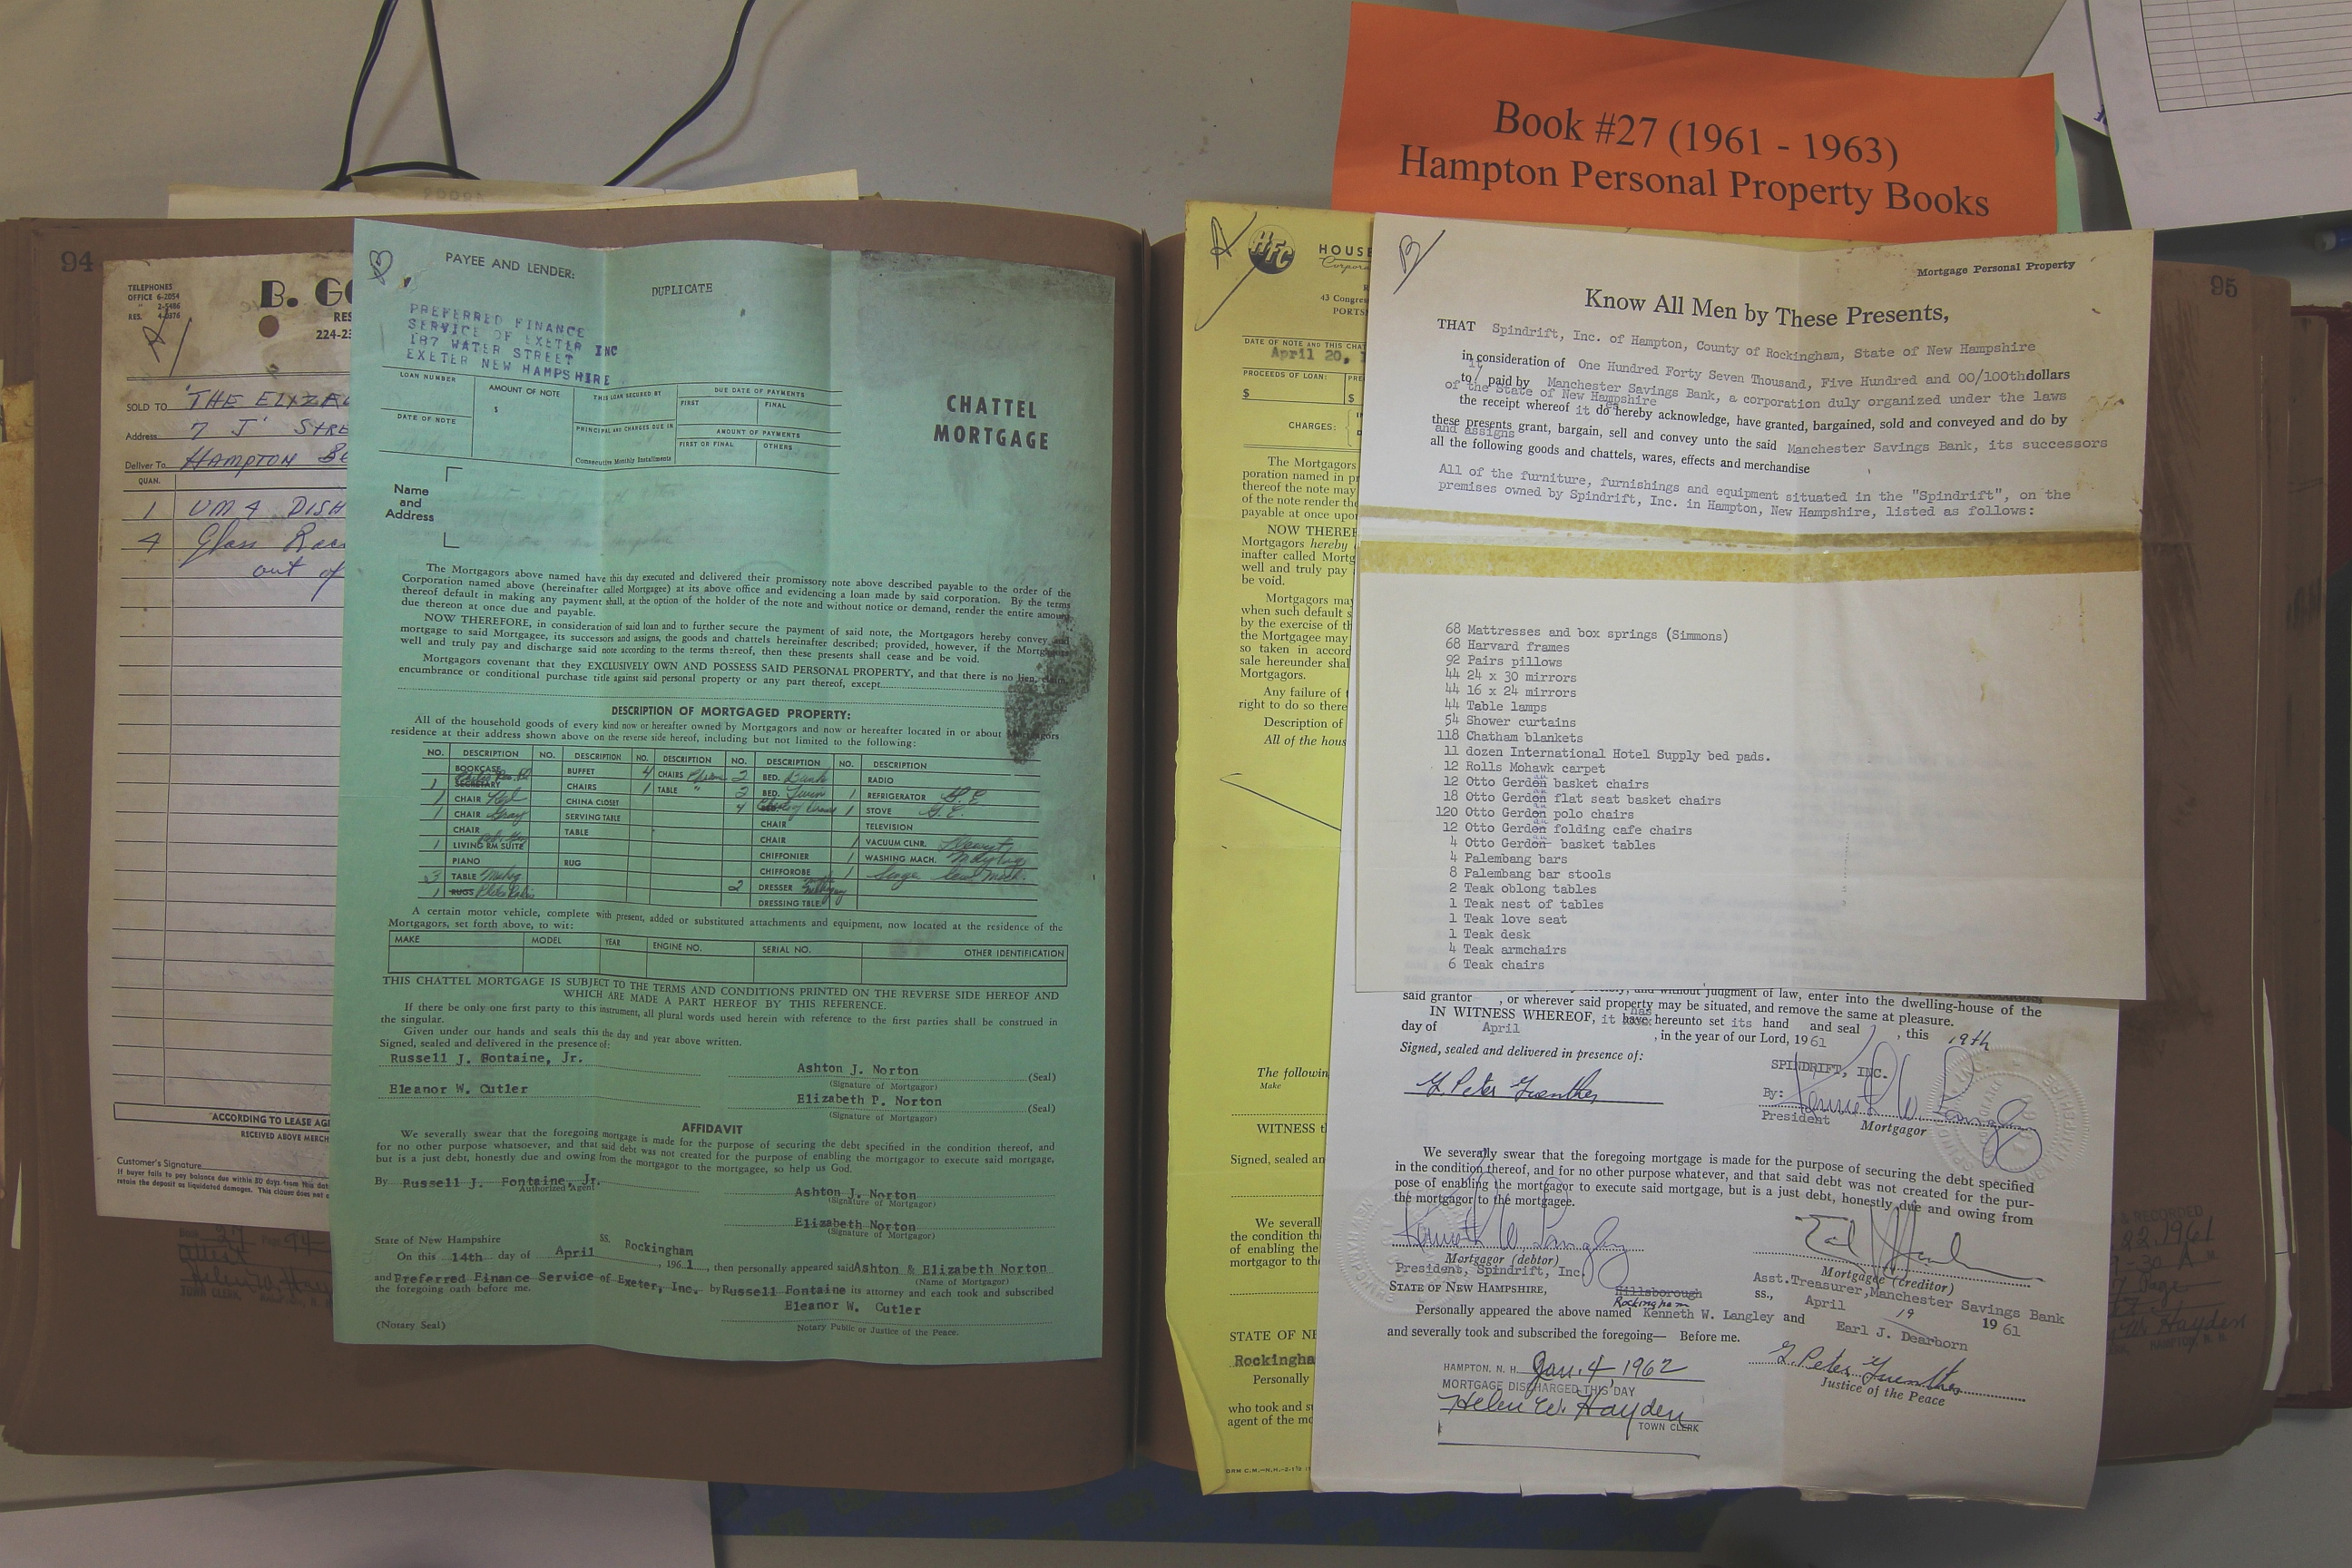 Book #27 (1961 - 1963)
Hampton Personal Property Books
94
TELEPHONES
OFFICE 6-2054
" 2-5486
RES. 4-0376
B. GO
RES
224-23
SOLD TO THE ELIZA
Address 7 J STRE
Deliver To HAMPTON BE
QUAN.
1 UM 4 DISH
4 Glass Rac
out of
ACCORDING TO LEASE AG
RECEIVED ABOVE MERCH
Customer's Signature
If buyer fails to pay balance due within 30 days from this dat
retain the deposit as liquidated damages. This clause does not a
TOWN CLERK
PAYEE AND LENDER:
DUPLICATE
PREFERRED FINANCE
SERVICE OF EXETER INC
187 WATER STREET
EXETER NEW HAMPSHIRE
CHATTEL
MORTGAGE
LOAN NUMBER
AMOUNT OF NOTE
$
THIS LOAN SECURED BY
DUE DATE OF PAYMENTS
FIRST
FINAL
DATE OF NOTE
PRINCIPAL AND CHARGES DUE IN
AMOUNT OF PAYMENTS
FIRST OR FINAL
OTHERS
Consecutive Monthly Installments
Name
and
Address
The Mortgagors above named have this day executed and delivered their promissory note above described payable to the order of the
Corporation named above (hereinafter called Mortgagee) at its above office and evidencing a loan made by said corporation. By the terms
thereof default in making any payment shall, at the option of the holder of the note and without notice or demand, render the entire amount
due thereon at once due and payable.
NOW THEREFORE, in consideration of said loan and to further secure the payment of said note, the Mortgagors hereby convey and
mortgage to said Mortgagee, its successors and assigns, the goods and chattels hereinafter described; provided, however, if the Mortgagors
well and truly pay and discharge said note according to the terms thereof, then these presents shall cease and be void.
Mortgagors covenant that they EXCLUSIVELY OWN AND POSSESS SAID PERSONAL PROPERTY, and that there is no lien, claim,
encumbrance or conditional purchase title against said personal property or any part thereof, except
DESCRIPTION OF MORTGAGED PROPERTY:
All of the household goods of every kind now or hereafter owned by Mortgagors and now or hereafter located in or about Mortgagors
residence at their address shown above on the reverse side hereof, including but not limited to the following:
NO. DESCRIPTION NO. DESCRIPTION NO. DESCRIPTION NO. DESCRIPTION NO. DESCRIPTION
BOOKCASE BUFFET 4 CHAIRS 2 BED. Bunk RADIO
1 SECRETARY CHAIRS 1 TABLE " 2 BED. Twin 1 REFRIGERATOR G.E.
1 CHAIR CHINA CLOSET 4 1 STOVE G.E.
1 CHAIR Gray SERVING TABLE CHAIR TELEVISION
CHAIR TABLE CHAIR 1 VACUUM CLNR.
1 LIVING RM SUITE CHIFFONIER 1 WASHING MACH. Maytag
PIANO RUG CHIFFOROBE 1
3 TABLE 2 DRESSER
1 RUGS DRESSING TBLE.
A certain motor vehicle, complete with present, added or substituted attachments and equipment, now located at the residence of the
Mortgagors, set forth above, to wit:
MAKE MODEL YEAR ENGINE NO. SERIAL NO. OTHER IDENTIFICATION
THIS CHATTEL MORTGAGE IS SUBJECT TO THE TERMS AND CONDITIONS PRINTED ON THE REVERSE SIDE HEREOF AND
WHICH ARE MADE A PART HEREOF BY THIS REFERENCE.
If there be only one first party to this instrument, all plural words used herein with reference to the first parties shall be construed in
the singular.
Given under our hands and seals this the day and year above written.
Signed, sealed and delivered in the presence of:
Russell J. Fontaine, Jr.
Ashton J. Norton (Seal)
(Signature of Mortgagor)
Eleanor W. Cutler
Elizabeth P. Norton (Seal)
(Signature of Mortgagor)
AFFIDAVIT
We severally swear that the foregoing mortgage is made for the purpose of securing the debt specified in the condition thereof, and
for no other purpose whatsoever, and that said debt was not created for the purpose of enabling the mortgagor to execute said mortgage,
but is a just debt, honestly due and owing from the mortgagor to the mortgagee, so help us God.
By Russell J. Fontaine, Jr.
Authorized Agent
Ashton J. Norton
(Signature of Mortgagor)
Elizabeth Norton
(Signature of Mortgagor)
State of New Hampshire ss. Rockingham
On this 14th day of April, 1961, then personally appeared said Ashton & Elizabeth Norton
(Name of Mortgagor)
and Preferred Finance Service of Exeter, Inc. by Russell Fontaine its attorney and each took and subscribed
the foregoing oath before me.
Eleanor W. Cutler
(Notary Seal)
Notary Public or Justice of the Peace.
HFC
HOUSE
Corpora
43 Congres
PORTS
DATE OF NOTE AND THIS CHAT
April 20, 1
PROCEEDS OF LOAN:
$
$
CHARGES:
The Mortgagors
poration named in pr
thereof the note may
of the note render the
payable at once upon
NOW THEREF
Mortgagors hereby
inafter called Mortg
well and truly pay
be void.
Mortgagors may
when such default s
by the exercise of th
the Mortgagee may
so taken in accord
sale hereunder shal
Mortgagors.
Any failure of t
right to do so there
Description of
All of the hous
The followin
Make
WITNESS t
Signed, sealed an
We severall
the condition th
of enabling the
mortgagor to the
STATE OF NE
Rockingha
Personally
who took and su
agent of the mo
95
B
Mortgage Personal Property
Know All Men by These Presents,
THAT Spindrift, Inc. of Hampton, County of Rockingham, State of New Hampshire
in consideration of One Hundred Forty Seven Thousand, Five Hundred and 00/100th dollars
to it paid by Manchester Savings Bank, a corporation duly organized under the laws
of the State of New Hampshire
the receipt whereof it does hereby acknowledge, have granted, bargained, sold and conveyed and do by
these presents grant, bargain, sell and convey unto the said Manchester Savings Bank, its successors
and assigns
all the following goods and chattels, wares, effects and merchandise
All of the furniture, furnishings and equipment situated in the "Spindrift", on the
premises owned by Spindrift, Inc. in Hampton, New Hampshire, listed as follows:
68 Mattresses and box springs (Simmons)
68 Harvard frames
92 Pairs pillows
44 24 x 30 mirrors
44 16 x 24 mirrors
44 Table lamps
54 Shower curtains
118 Chatham blankets
11 dozen International Hotel Supply bed pads.
12 Rolls Mohawk carpet
12 Otto Gerdon basket chairs
18 Otto Gerdon flat seat basket chairs
120 Otto Gerdon polo chairs
12 Otto Gerdon folding cafe chairs
4 Otto Gerdon basket tables
4 Palembang bars
8 Palembang bar stools
2 Teak oblong tables
1 Teak nest of tables
1 Teak love seat
1 Teak desk
4 Teak armchairs
6 Teak chairs
and without judgment of law, enter into the dwelling-house of the
said grantor , or wherever said property may be situated, and remove the same at pleasure.
IN WITNESS WHEREOF, it has hereunto set its hand and seal , this 19th
day of April , in the year of our Lord, 1961
Signed, sealed and delivered in presence of:
SPINDRIFT, INC.
G. Peter Guenther
By: Kenneth W. Langley
President Mortgagor
We severally swear that the foregoing mortgage is made for the purpose of securing the debt specified
in the condition thereof, and for no other purpose whatever, and that said debt was not created for the pur-
pose of enabling the mortgagor to execute said mortgage, but is a just debt, honestly due and owing from
the mortgagor to the mortgagee.
Kenneth W. Langley
Mortgagor (debtor)
President, Spindrift, Inc.
Mortgagee (creditor)
Asst. Treasurer, Manchester Savings Bank
STATE OF NEW HAMPSHIRE, Hillsborough ss., April 19 1961
Rockingham
Personally appeared the above named Kenneth W. Langley and Earl J. Dearborn
and severally took and subscribed the foregoing— Before me.
G. Peter Guenther
Justice of the Peace
HAMPTON, N. H. Jan. 4 1962
MORTGAGE DISCHARGED THIS DAY
Helen W. Hayden
TOWN CLERK
& RECORDED
22, 1961
9-30 A. M.
Page
W. Hayden
HAMPTON, N. H.